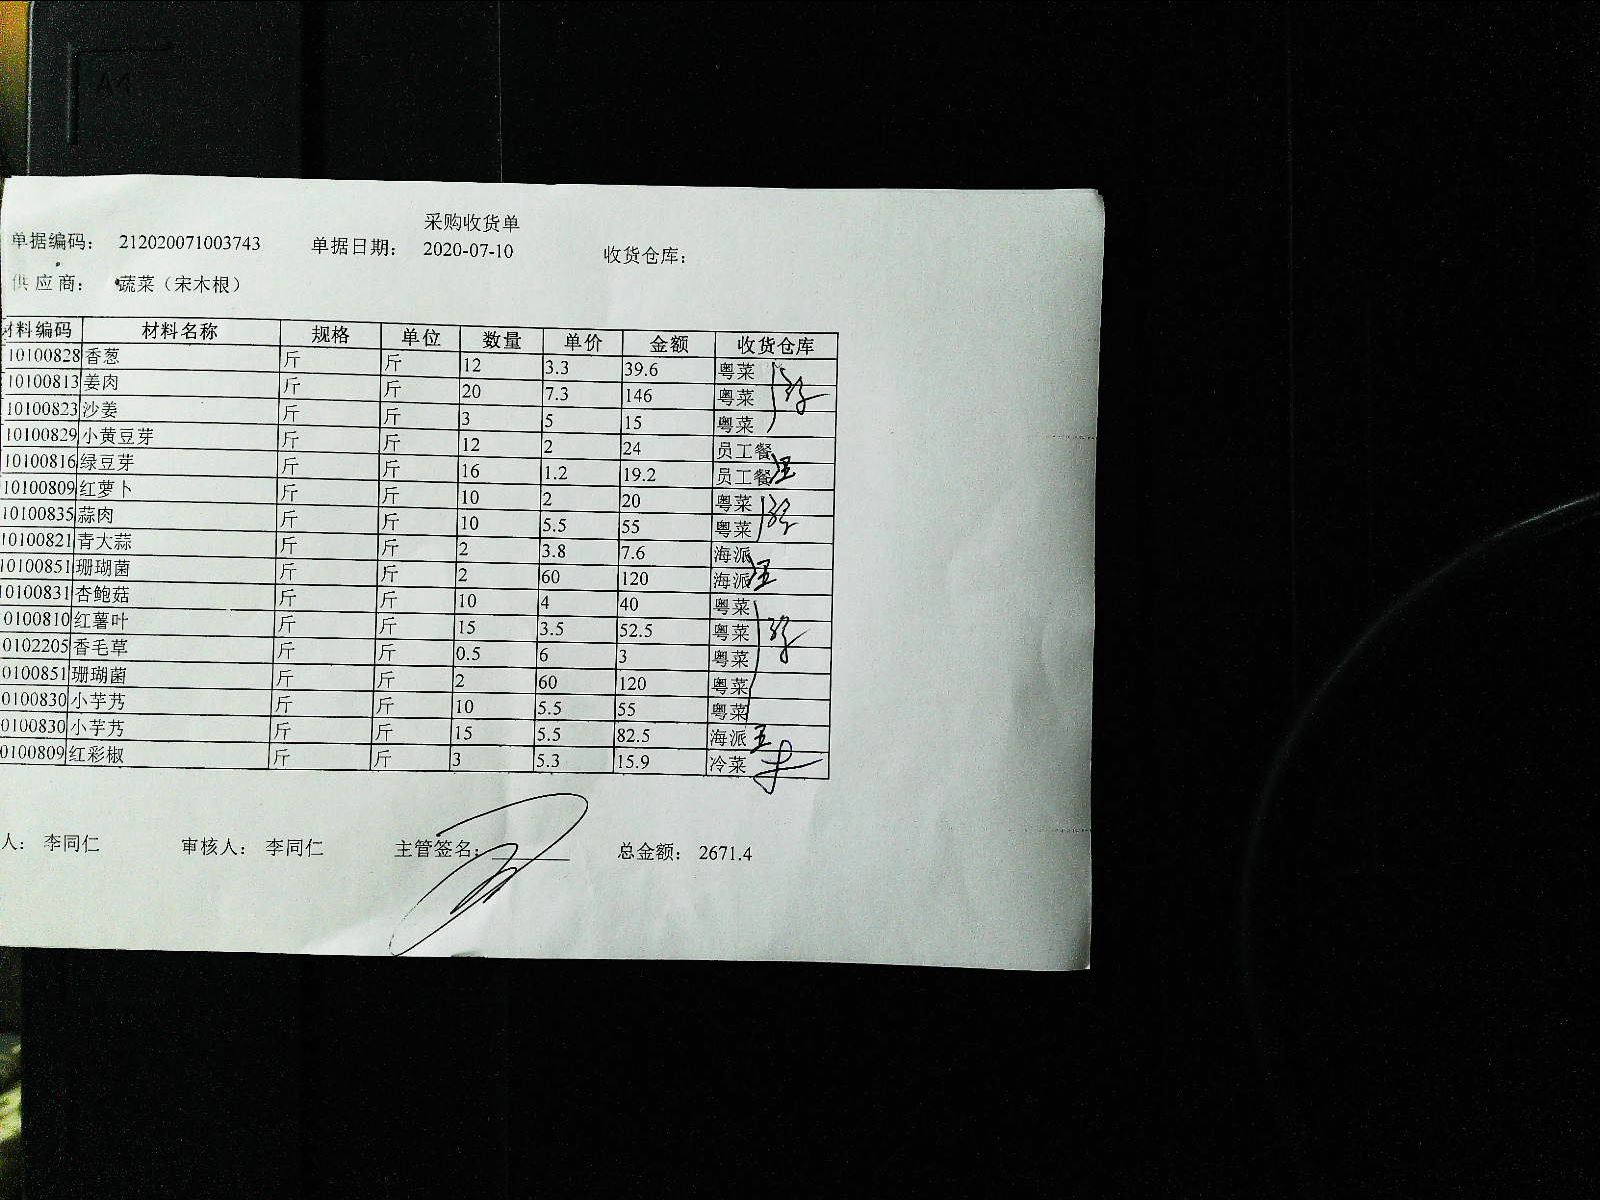 A4
采购收货单
单据编码: 212020071003743 单据日期: 2020-07-10 收货仓库:
供应商: 蔬菜（宋木根）
材料编码 材料名称 规格 单位 数量 单价 金额 收货仓库
10100828 香葱 斤 斤 12 3.3 39.6 粤菜
10100813 姜肉 斤 斤 20 7.3 146 粤菜
10100823 沙姜 斤 斤 3 5 15 粤菜
10100829 小黄豆芽 斤 斤 12 2 24 员工餐
10100816 绿豆芽 斤 斤 16 1.2 19.2 员工餐
10100809 红萝卜 斤 斤 10 2 20 粤菜
10100835 蒜肉 斤 斤 10 5.5 55 粤菜
10100821 青大蒜 斤 斤 2 3.8 7.6 海派
10100851 珊瑚菌 斤 斤 2 60 120 海派
10100831 杏鲍菇 斤 斤 10 4 40 粤菜
0100810 红薯叶 斤 斤 15 3.5 52.5 粤菜
0102205 香毛草 斤 斤 0.5 6 3 粤菜
0100851 珊瑚菌 斤 斤 2 60 120 粤菜
0100830 小芋艿 斤 斤 10 5.5 55 粤菜
0100830 小芋艿 斤 斤 15 5.5 82.5 海派
0100809 红彩椒 斤 斤 3 5.3 15.9 冷菜
人: 李同仁 审核人: 李同仁 主管签名: 总金额: 2671.4